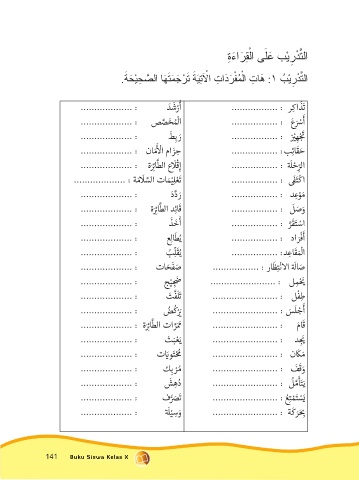 التَّدْرِيْبُ عَلَى الْقِرَاءَةِ
التَّدْرِيْبُ ١: هَاتِ الْمُفْرَدَاتِ الْآتِيَةَ تَرْجَمَتَهَا الصَّحِيْحَةَ.
تَذَاكِر : ................ أَرْشَدَ : ...................
أَسْرَعَ : ................ الْمُخَصَّص : ...................
تَجْهِيْز : ................ رَبَطَ : ...................
حَقَائِب : ................ حِزَام الْأَمَان : ...................
الرِّحْلَة : ................ إِقْلَاع الطَّائِرَة : ...................
اكْتَفَى : ................ تَعْلِيْمَات السَّلَامَة : ...................
مَوْعِد : ................ رَدَّدَ : ...................
وَصَلَ : ................ قَائِد الطَّائِرَة : ...................
اسْتَقَرَّ : ................ أَخَذَ : ...................
أَفْرَاد : ................ يُطَالِع : ...................
الْمَقَاعِد : ................ يُقَلِّبُ : ...................
صَالَة الِانْتِظَار : ................. صَفَحَات : ...................
يَحْمِل : ....................... ضَجِيْج : ...................
طِفْل : ....................... تَلَفَّتَ : ...................
أَجْلَسَ : ....................... يَرْكُضُ : ...................
قَامَ : ....................... مَمَرَّات الطَّائِرَة : ...................
يَجِد : ....................... يَعْبَث : ...................
مَكَان : ....................... مُحْتَوَيَات : ...................
وَقَفَ : ....................... مُرْبِك : ...................
يَتَأَمَّلُ : ....................... دُهِشَ : ...................
يَسْتَمْتِعُ : ....................... تَصَرُّف : ...................
بِحَرَكَة : ....................... وَسِيْلَة : ...................
141 Buku Siswa Kelas X